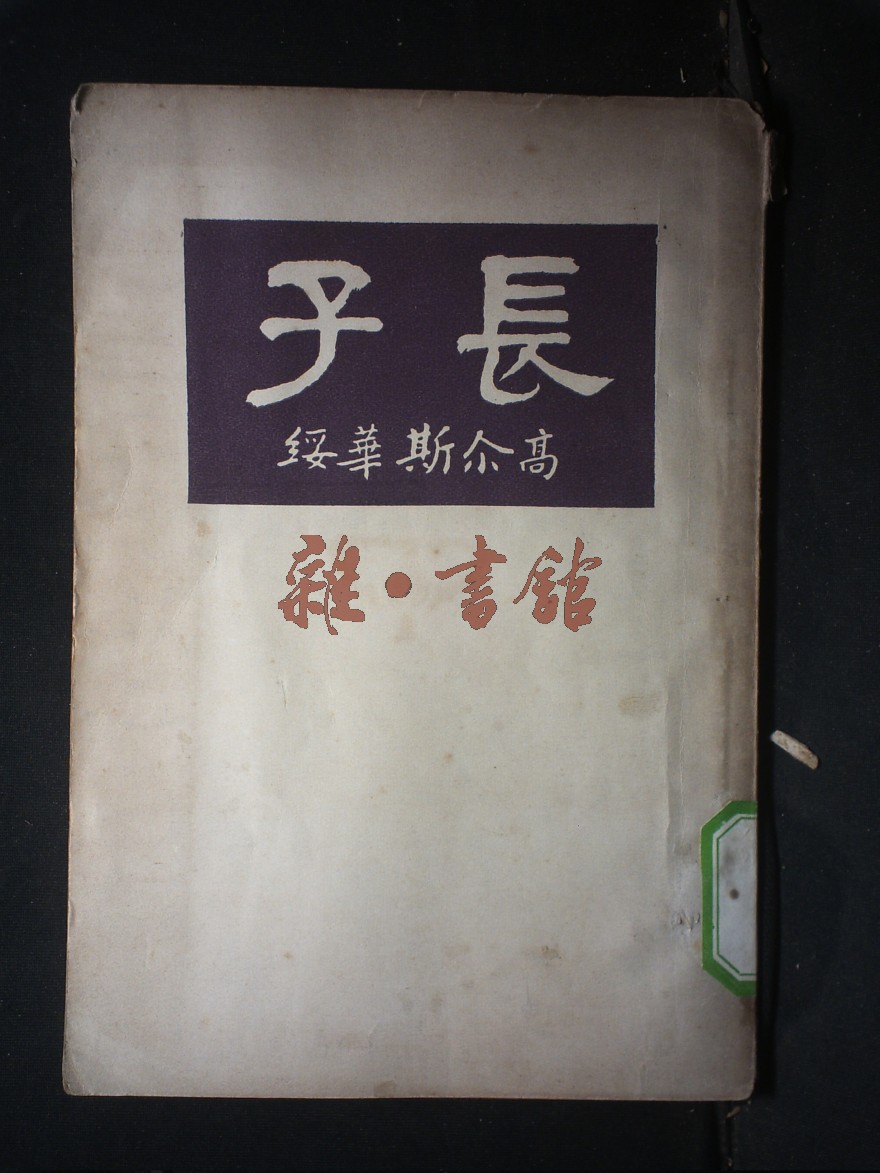 長子
高尒斯華綏
雜·書館